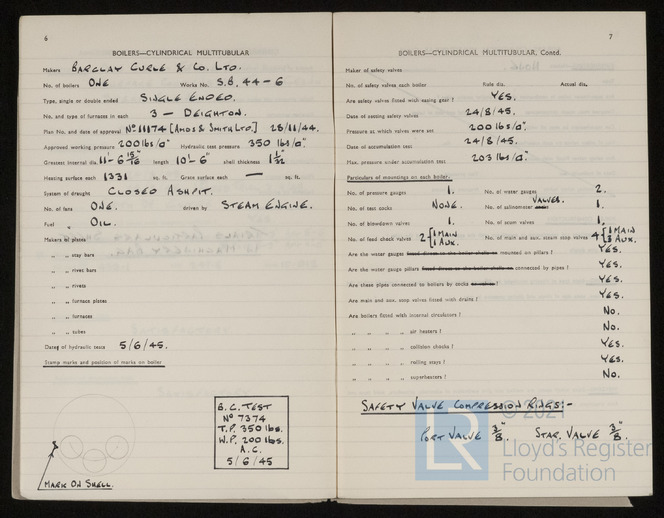 6
BOILERS—CYLINDRICAL MULTITUBULAR
Makers BARCLAY CURLE & CO. LTD.
No. of boilers ONE Works No. S.B. 44-6
Type, single or double ended SINGLE ENDED.
No. and type of furnaces in each 3 — DEIGHTON.
Plan No. and date of approval No 11174 [AMOS & SMITH LTD.] 28/11/44.
Approved working pressure 200 lbs/□" Hydraulic test pressure 350 lbs/□"
Greatest internal dia. 11-6 15/16" length 10'-6" shell thickness 1 1/32"
Heating surface each 1331 sq. ft. Grate surface each — sq. ft.
System of draught CLOSED ASHPIT.
No. of fans ONE. driven by STEAM ENGINE.
Fuel OIL.
Makers of plates
„ „ stay bars
„ „ rivet bars
„ „ rivets
„ „ furnace plates
„ „ furnaces
„ „ tubes
Dates of hydraulic tests 5/6/45.
Stamp marks and position of marks on boiler
B.C. TEST
No 7374
T.P. 350 lbs.
W.P. 200 lbs.
A.C.
5/6/45
MARK ON SHELL.
7
BOILERS—CYLINDRICAL MULTITUBULAR, Contd.
Maker of safety valves
No. of safety valves each boiler Rule dia. Actual dia.
Are safety valves fitted with easing gear? YES.
Date of setting safety valves 24/8/45.
Pressure at which valves were set 200 lbs/□".
Date of accumulation test 24/8/45.
Max. pressure under accumulation test 203 lbs/□".
Particulars of mountings on each boiler.
No. of pressure gauges 1. No. of water gauges 2.
No. of test cocks NONE. No. of salinometer VALVES. 1.
No. of blowdown valves 1. No. of scum valves 1.
No. of feed check valves 2 {1 MAIN 1 AUX. No. of main and aux. steam stop valves 4 {1 MAIN 3 AUX.
Are the water gauges fitted direct to the boiler shells or mounted on pillars? YES.
Are the water gauge pillars fitted direct to the boiler shells or connected by pipes? YES.
Are these pipes connected to boilers by cocks or valves? YES.
Are main and aux. stop valves fitted with drains? YES.
Are boilers fitted with internal circulators? NO.
„ „ „ „ air heaters? NO.
„ „ „ „ collision chocks? YES.
„ „ „ „ rolling stays? YES.
„ „ „ „ superheaters? NO.
SAFETY VALVE COMPRESSION RINGS:-
PORT VALVE 3/8". STAR. VALVE 3/8".
© 2021
LR
Lloyd's Register
Foundation